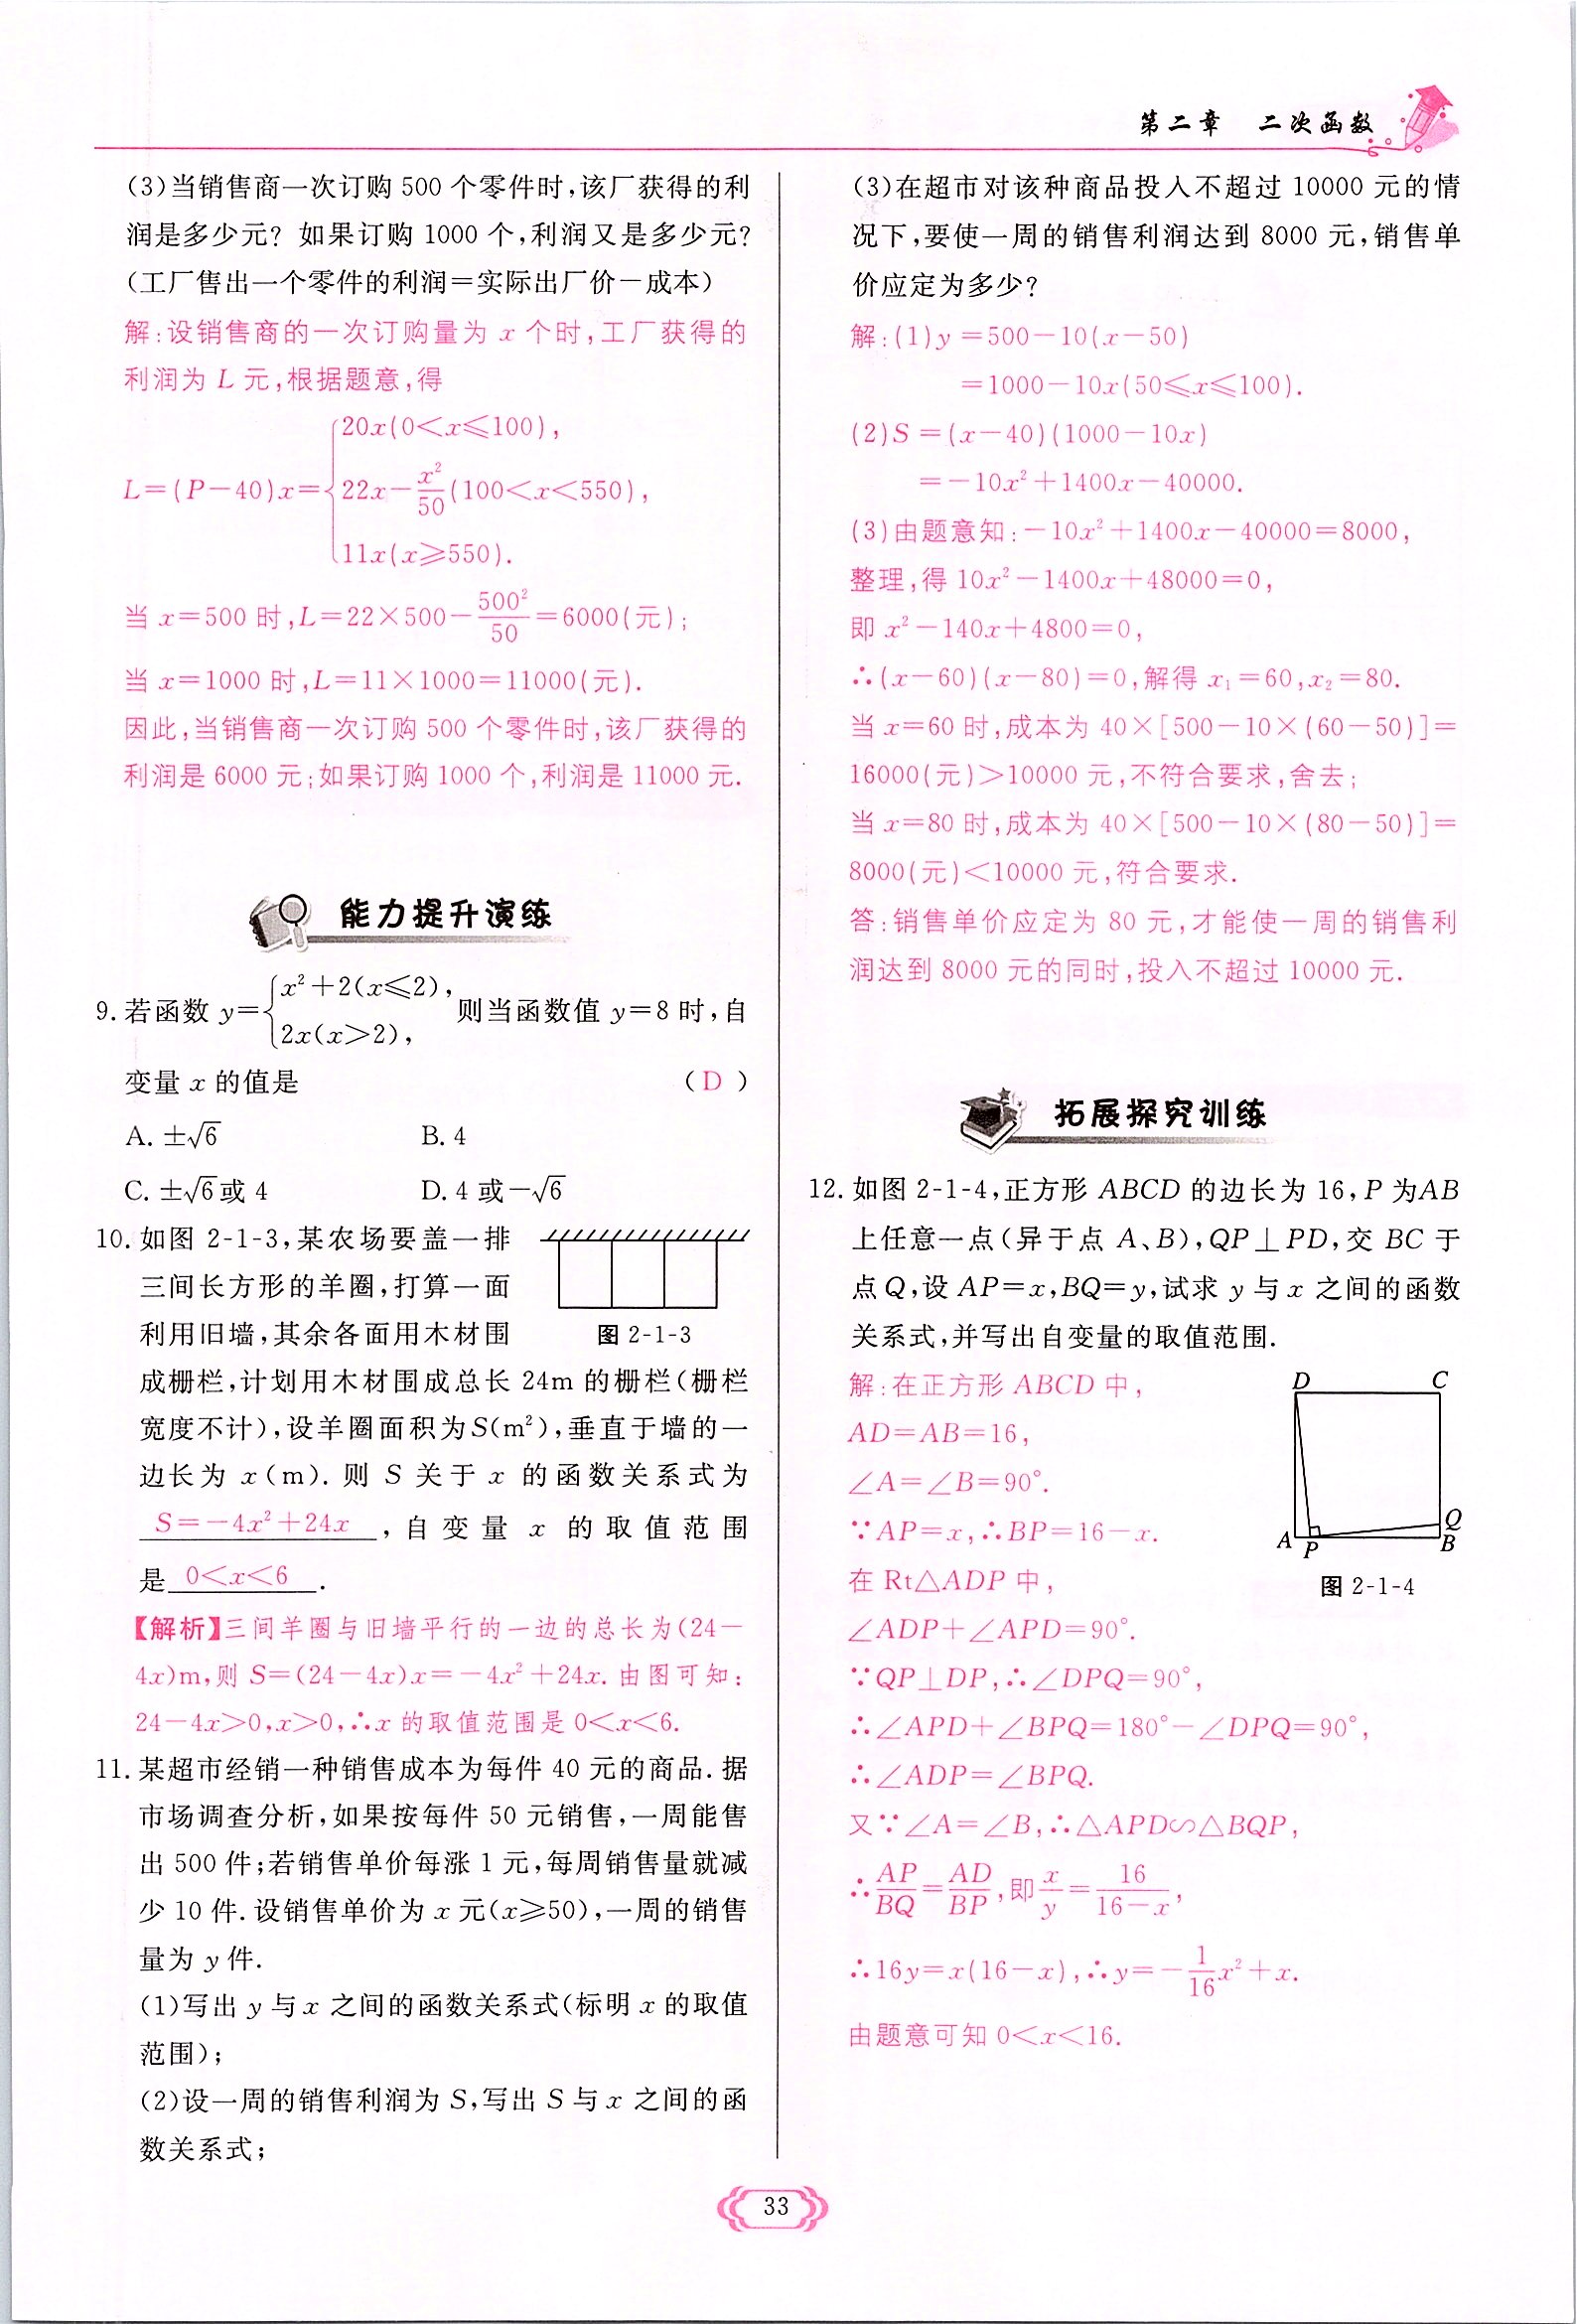 第二章 二次函数
(3)当销售商一次订购 500 个零件时,该厂获得的利
润是多少元? 如果订购 1000 个,利润又是多少元?
(工厂售出一个零件的利润=实际出厂价-成本)
解:设销售商的一次订购量为 x 个时,工厂获得的
利润为 L 元,根据题意,得
L=(P-40)x={20x(0<x≤100),
22x-x²/50(100<x<550),
11x(x≥550).
当 x=500 时,L=22×500-500²/50=6000(元);
当 x=1000 时,L=11×1000=11000(元).
因此,当销售商一次订购 500 个零件时,该厂获得的
利润是 6000 元;如果订购 1000 个,利润是 11000 元.
能力提升演练
9. 若函数 y={x²+2(x≤2), 2x(x>2), 则当函数值 y=8 时,自
变量 x 的值是 (D)
A. ±√6 B. 4
C. ±√6或 4 D. 4 或-√6
10. 如图 2-1-3,某农场要盖一排
三间长方形的羊圈,打算一面
利用旧墙,其余各面用木材围
图 2-1-3
成栅栏,计划用木材围成总长 24m 的栅栏(栅栏
宽度不计),设羊圈面积为S(m²),垂直于墙的一
边长为 x(m). 则 S 关于 x 的函数关系式为
S=-4x²+24x,自变量 x 的取值范围
是 0<x<6.
【解析】三间羊圈与旧墙平行的一边的总长为(24-
4x)m,则 S=(24-4x)x=-4x²+24x. 由图可知:
24-4x>0,x>0,∴x 的取值范围是 0<x<6.
11. 某超市经销一种销售成本为每件 40 元的商品. 据
市场调查分析,如果按每件 50 元销售,一周能售
出 500 件;若销售单价每涨 1 元,每周销售量就减
少 10 件. 设销售单价为 x 元(x≥50),一周的销售
量为 y 件.
(1)写出 y 与 x 之间的函数关系式(标明 x 的取值
范围);
(2)设一周的销售利润为 S,写出 S 与 x 之间的函
数关系式;
(3)在超市对该种商品投入不超过 10000 元的情
况下,要使一周的销售利润达到 8000 元,销售单
价应定为多少?
解:(1)y=500-10(x-50)
=1000-10x(50≤x≤100).
(2)S=(x-40)(1000-10x)
=-10x²+1400x-40000.
(3)由题意知:-10x²+1400x-40000=8000,
整理,得 10x²-1400x+48000=0,
即 x²-140x+4800=0,
∴(x-60)(x-80)=0,解得 x₁=60,x₂=80.
当 x=60 时,成本为 40×[500-10×(60-50)]=
16000(元)>10000 元,不符合要求,舍去;
当 x=80 时,成本为 40×[500-10×(80-50)]=
8000(元)<10000 元,符合要求.
答:销售单价应定为 80 元,才能使一周的销售利
润达到 8000 元的同时,投入不超过 10000 元.
拓展探究训练
12. 如图 2-1-4,正方形 ABCD 的边长为 16,P 为AB
上任意一点(异于点 A、B),QP⊥PD,交 BC 于
点 Q,设 AP=x,BQ=y,试求 y 与 x 之间的函数
关系式,并写出自变量的取值范围.
解:在正方形 ABCD 中,
AD=AB=16,
∠A=∠B=90°.
∵AP=x,∴BP=16-x.
在 Rt△ADP 中,
∠ADP+∠APD=90°.
D C
Q
A P B
图 2-1-4
∵QP⊥DP,∴∠DPQ=90°,
∴∠APD+∠BPQ=180°-∠DPQ=90°,
∴∠ADP=∠BPQ.
又∵∠A=∠B,∴△APD∽△BQP,
∴AP/BQ=AD/BP,即x/y=16/(16-x),
∴16y=x(16-x),∴y=-1/16x²+x.
由题意可知 0<x<16.
33